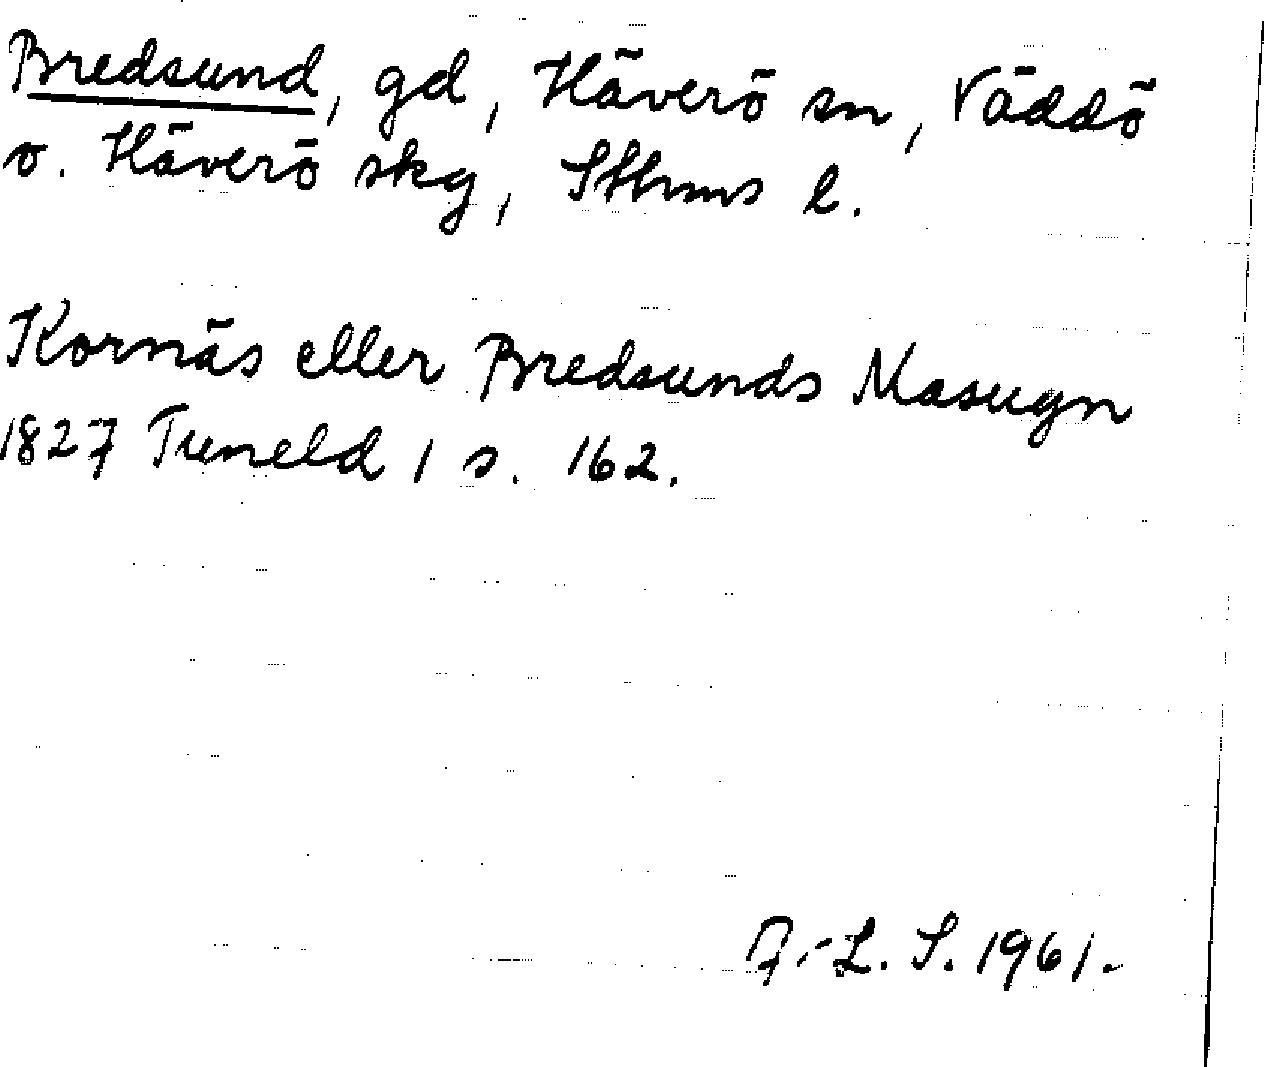 Bredsund, gd, Häverö sn, Väddö
o. Häverö skg, Sthms l.
Kornäs eller Bredsunds Masugn
1827 Tuneld 1 s. 162.
A.-L. S. 1961.